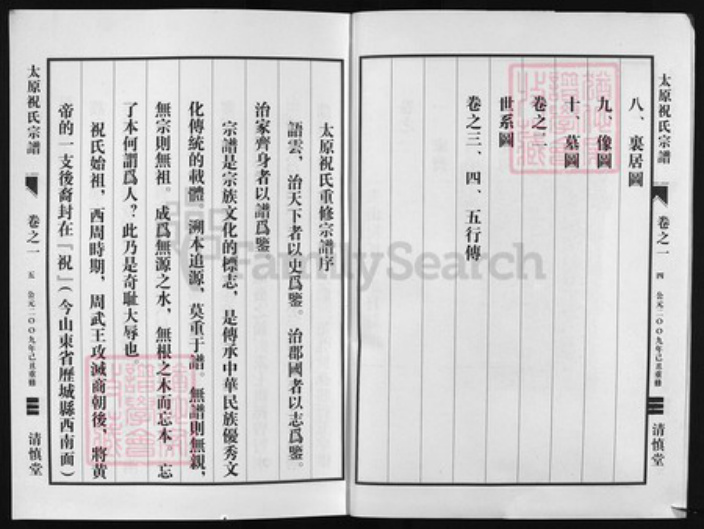 太原祝氏宗譜
卷之一
四
公元二〇〇九年己丑重修
清慎堂
八、裏居圖
九、像圖
十、墓圖
卷之二
世系圖
卷之三、四、五行傳
太原祝氏重修宗譜序
語雲，治天下者以史爲鑒。治郡國者以志爲鑒。
治家齊身者以譜爲鑒
宗譜是宗族文化的標志，是傳承中華民族優秀文
化傳統的載體。溯本追源，莫重于譜。無譜則無親，
無宗則無祖。成爲無源之水，無根之木而忘本。忘
了本何謂爲人？此乃是奇耻大辱也。
祝氏始祖，西周時期，周武王攻滅商朝後，將黄
帝的一支後裔封在「祝」（今山東省歷城縣西南面）
太原祝氏宗譜
卷之一
五
公元二〇〇九年己丑重修
清慎堂
FamilySearch